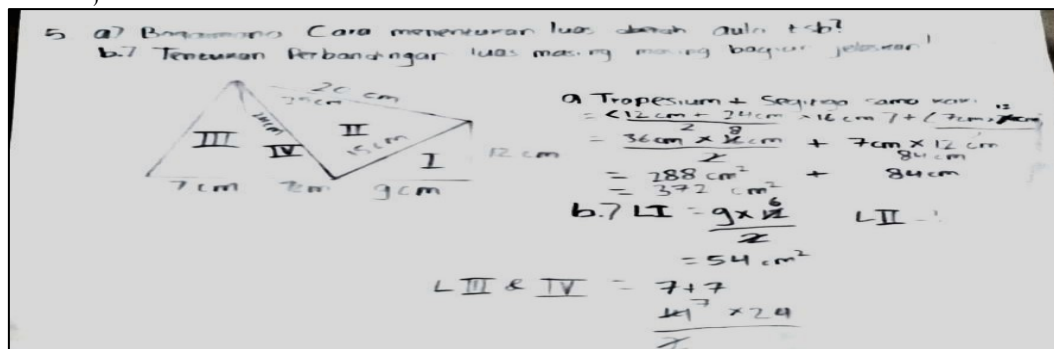 5 a) Cara menentukan luas daerah aula tsb?
b.7 Tentukan Perbandingan luas masing masing bagian jelaskan!
20 cm
25 cm
24 cm
III
II
IV
15 cm
I
12 cm
7 cm
7cm
9cm
a Trapesium + Segitiga sama kaki
= (12 cm + 24cm × 16 cm) + (7cm ×
2
= 36cm × cm + 7cm × 12 cm
2 84 cm
= 288 cm² + 84 cm
= 372 cm²
b.7 LI = 9 × 12 6 LII =
2
= 54 cm²
L III & IV = 7+7
14 7 × 24
2